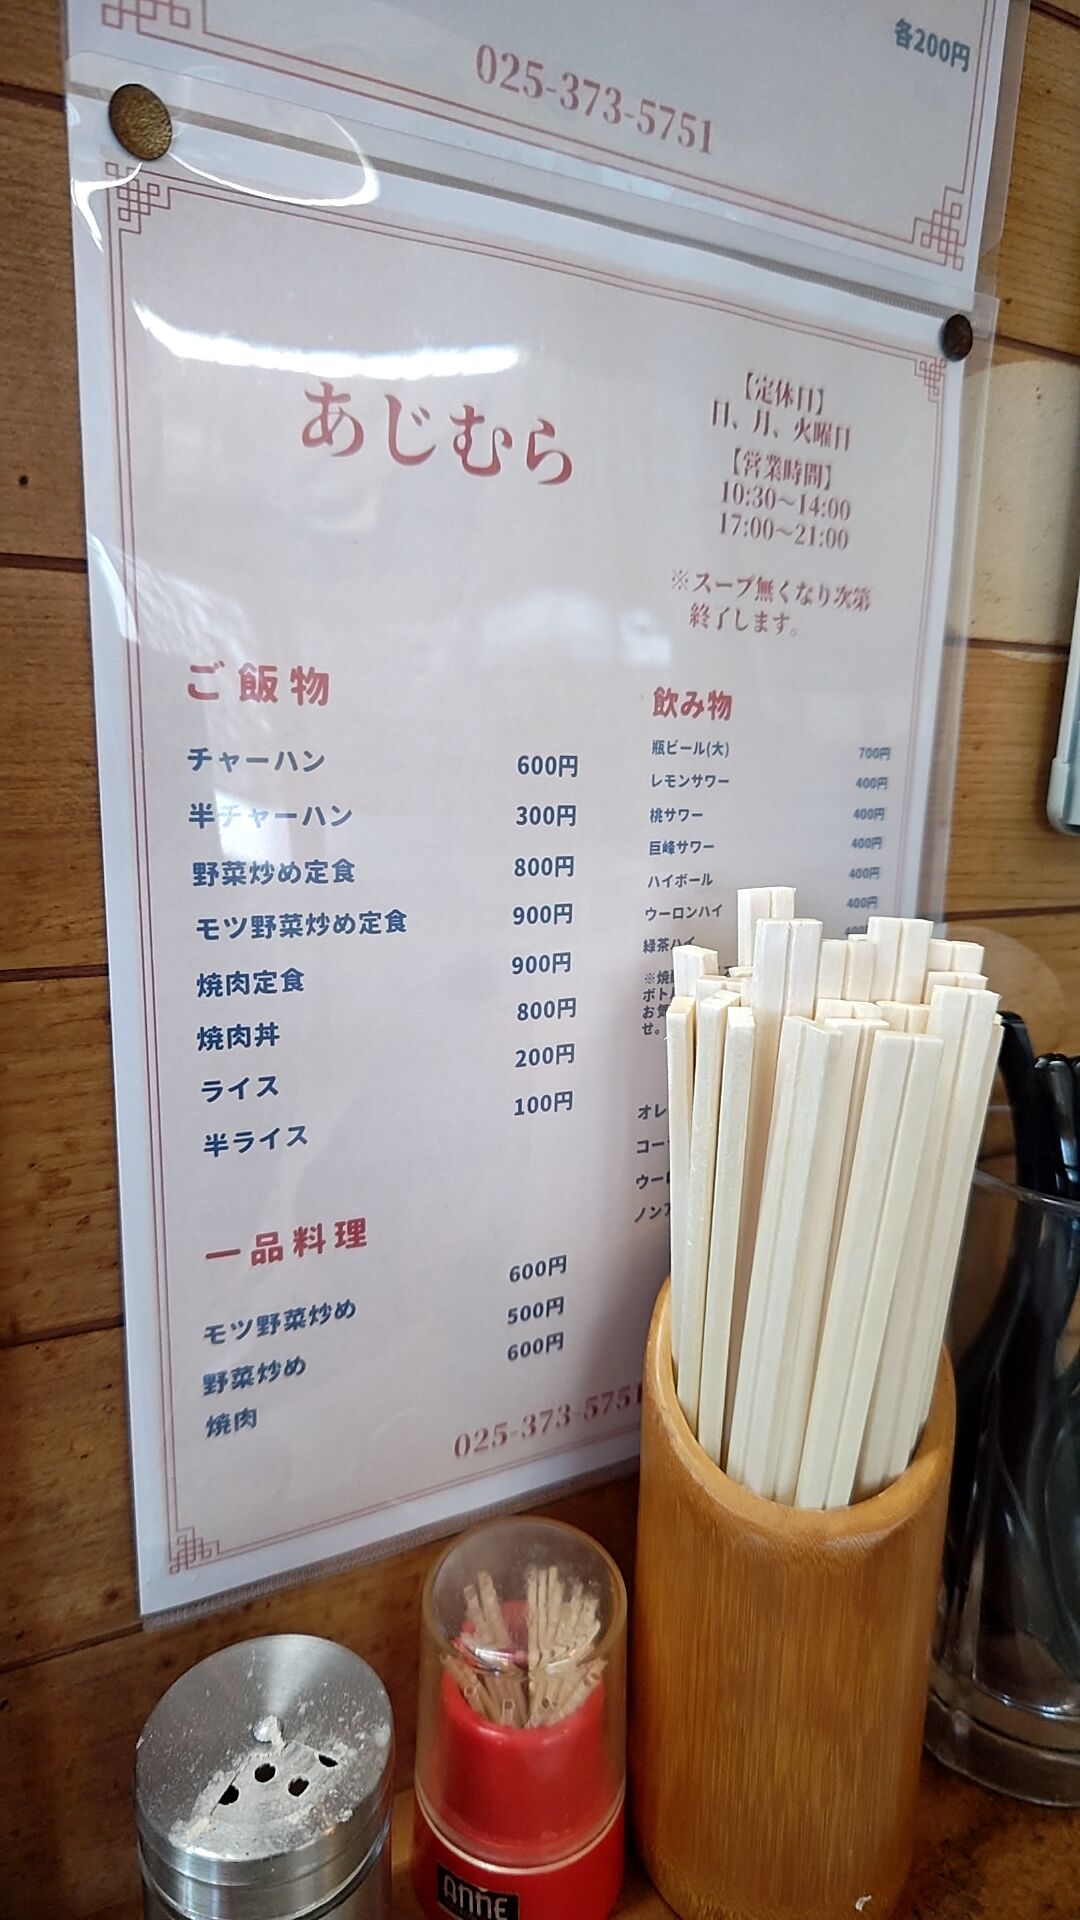 各200円
025-373-5751
あじむら
【定休日】
日、月、火曜日
【営業時間】
10:30〜14:00
17:00〜21:00
※スープ無くなり次第
終了します。
ご飯物
チャーハン 600円
半チャーハン 300円
野菜炒め定食 800円
モツ野菜炒め定食 900円
焼肉定食 900円
焼肉丼 800円
ライス 200円
半ライス 100円
一品料理
モツ野菜炒め 600円
野菜炒め 500円
焼肉 600円
飲み物
瓶ビール(大) 700円
レモンサワー 400円
桃サワー 400円
巨峰サワー 400円
ハイボール 400円
ウーロンハイ 400円
緑茶ハイ
※焼
ボト
お気
せ。
オレ
コー
ウー
ノン
025-373-5751
ANNE